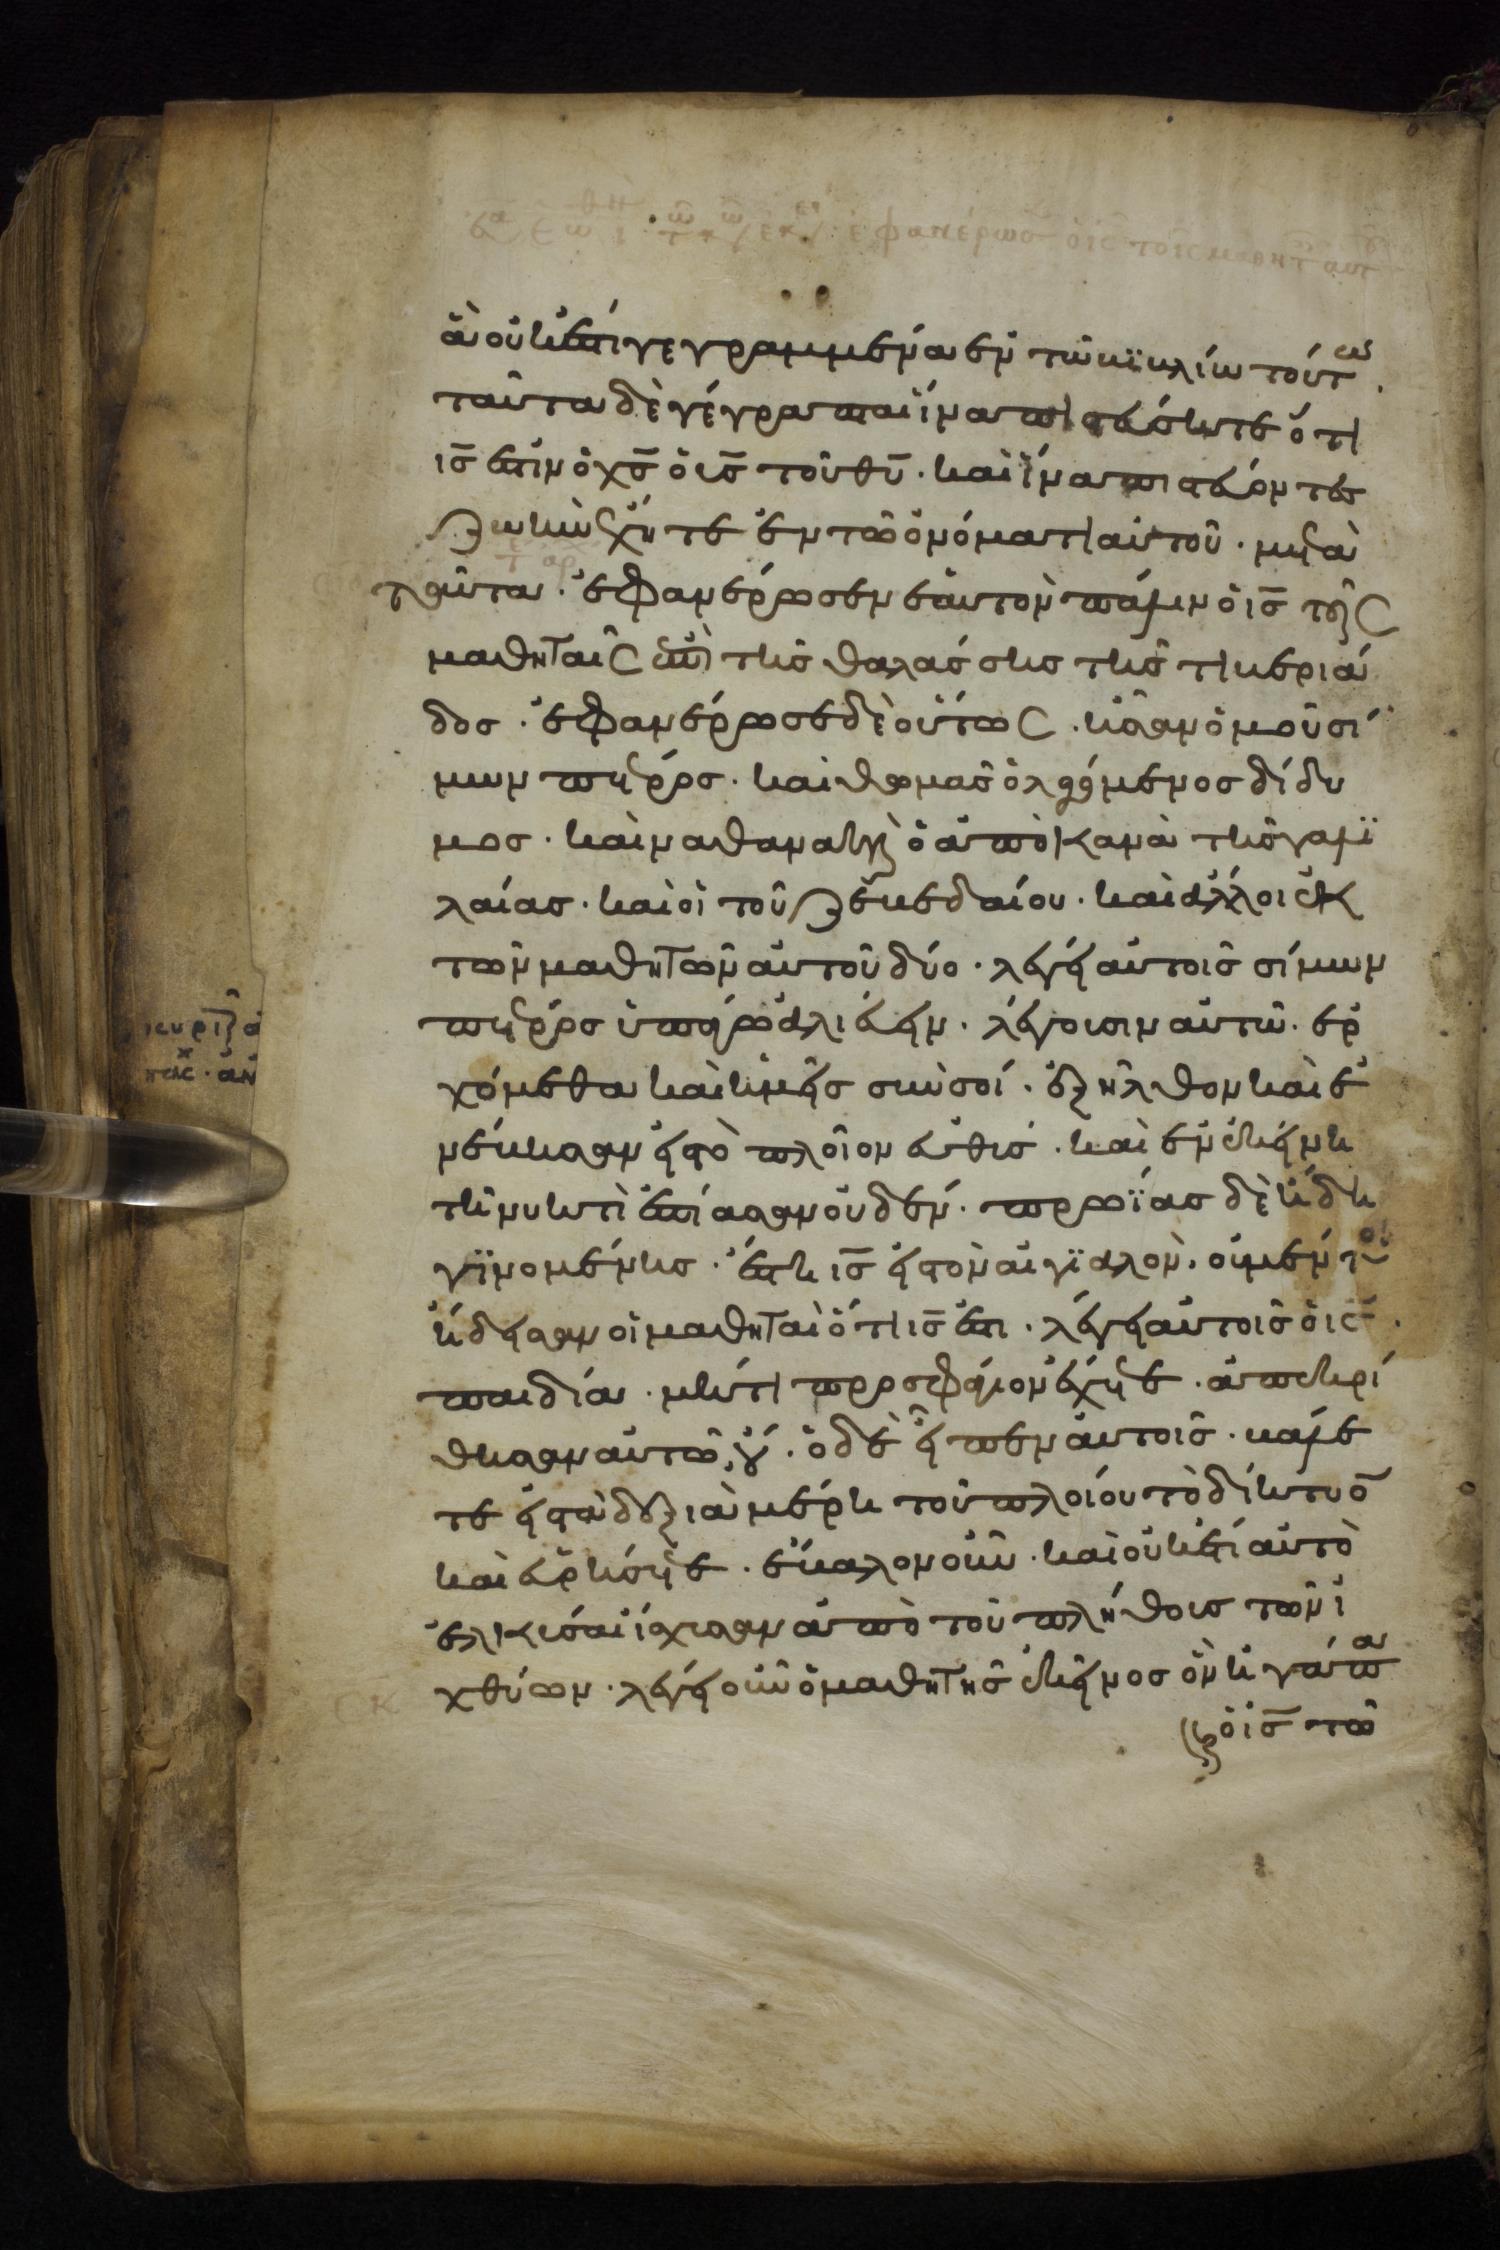 ἐφανέρωσ ὁ ις τοῖς μαθητ αυτ
ἃ οὐκ ἔστι γεγραμμένα ἐν τῶ βϊβλίω τούτω.
ταῦτα δὲ γέγραπται ἵνα πιστεύσητε ὅτι
ις ἐστὶν ὁ χς ὁ υς τοῦ θυ · καὶ ἵνα πιστεύοντες
ζωὴν ἔχητε ἐν τῶ ὀνόματι αὐτοῦ · μετὰ
ταῦτα · ἐφανέρωσεν ἑαυτὸν πάλιν ὁ ις τοῖς
μαθηταῖς ἐπὶ τῆς θαλάσσης τῆς τιβεριά
δος · ἐφανέρωσε δὲ οὕτως · ἦσαν ὁμοῦ σί
μων πέτρος · καὶ θωμᾶς ὁ λεγόμενος δίδυ
μος · καὶ ναθαναὴλ ὁ ἀπὸ κανὰ τῆς γαλϊ
λαίας · καὶ οἱ τοῦ ζεβεδαίου · καὶ ἄλλοι ἐκ
τῶν μαθητῶν αὐτοῦ δύο · λέγει αὐτοῖς σίμων
πέτρος ὑπάγω ἁλιεύειν · λέγουσιν αὐτῶ · ἐρ
χόμεθα καὶ ἡμεῖς σὺν σοί · ἐξῆλθον καὶ ἐ
νέβησαν εἰς τὸ πλοῖον εὐθὺς · καὶ ἐν ἐκείνη
τῆ νυκτὶ ἐπίασαν οὐδέν · πρωΐας δὲ ἤδη
γϊνομένης · ἔστη ις εἰς τὸν αἰγϊαλὸν · οὐ μέν τοι
ἤδεισαν οἱ μαθηταὶ ὅτι ις ἐστι · λέγει αὐτοῖς ὁ ις ·
παιδία · μήτι προσφάγιον ἔχετε · ἀπεκρί
θησαν αὐτῶ, οὔ · ὁ δὲ εἶπεν αὐτοῖς · βάλε
τε εἰς τὰ δεξιὰ μέρη τοῦ πλοίου τὸ δίκτυο
καὶ εὑρήσετε · ἔβαλον οὖν · καὶ οὐκ ἔτι αὐτὸ
ἑλκύσαι ἴσχυσαν ἀπὸ τοῦ πλήθους τῶν ἰ
χθύων · λέγει οὖν ὁ μαθητὴς ἐκεῖνος ὃν ἠγάπα
ὁ ις τῶ